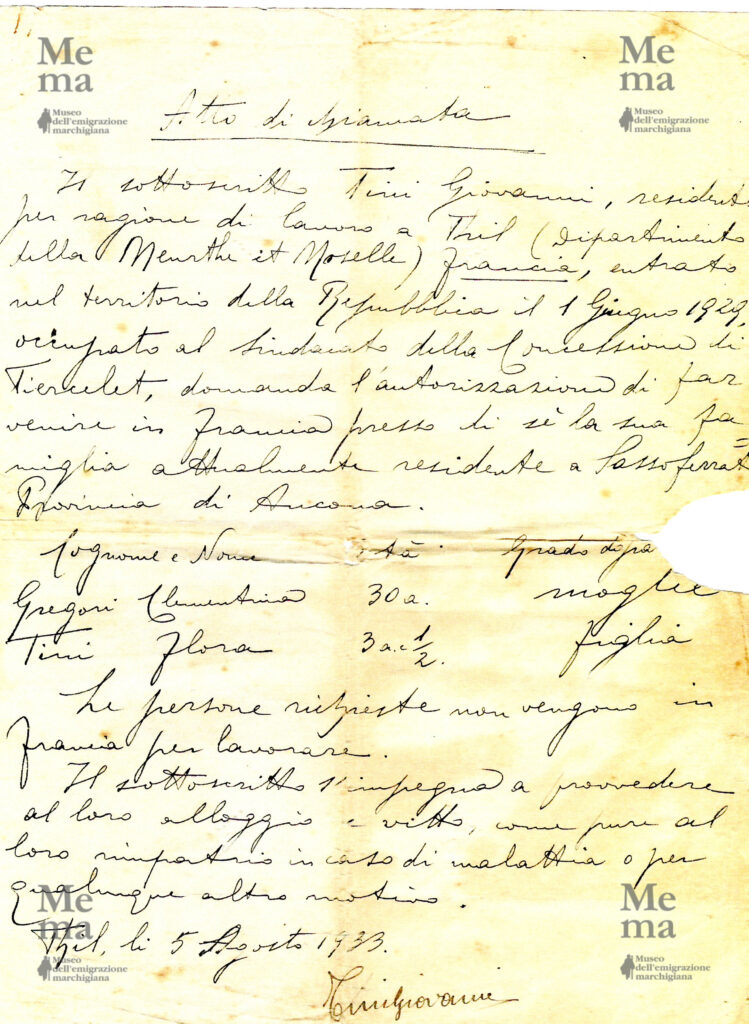 Me
ma
Museo
dell'emigrazione
marchigiana
Me
ma
Museo
dell'emigrazione
marchigiana
Atto di chiamata
Il sottoscritto Tini Giovanni, resident
per ragione di lavoro a Thil (Dipartimento
della Meurthe et Moselle) Francia, entrato
nel territorio della Repubblica il 1 Giugno 1929,
occupato al Sindacato della Concessione di
Tiercelet, domanda l'autorizzazione di far
venire in Francia presso di sè la sua fa=
miglia attualmente residente a Sassoferrat
Provincia di Ancona.
Cognome e Nome età Grado di pa
Gregori Clementina 30 a. moglie
Tini Flora 3 a. e 1/2. figlia
Le persone richieste non vengono in
Francia per lavorare.
Il sottoscritto s'impegna a provvedere
al loro alloggio e vitto, come pure al
loro rimpatrio in caso di malattia o per
qualunque altro motivo.
Thil, li 5 Agosto 1933.
Tini Giovanni
Me
ma
Museo
dell'emigrazione
marchigiana
Me
ma
Museo
dell'emigrazione
marchigiana